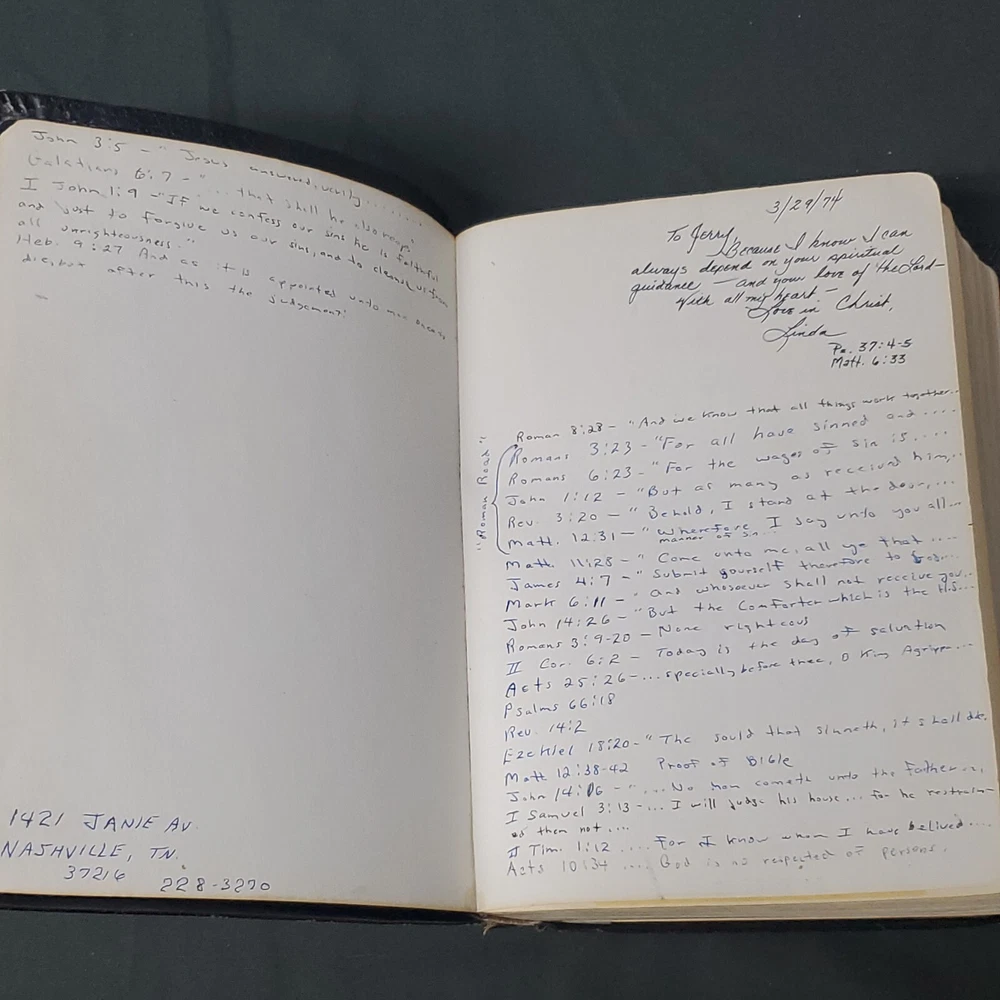 John 3:5 - "Jesus answered, verily........
Galatians 6:7 - "... that shall he also reap."
I John 1:9 - "If we confess our sins he is faithful
and just to forgive us our sins, and to cleanse us from
all unrighteousness."
Heb. 9:27 And as it is appointed unto man once to
die, but after this the judgement!
1421 JANIE AV
NASHVILLE, TN.
37216 228-3270
3/29/74
To Jerry,
Because I know I can
always depend on your spiritual
guidance — and your love of the Lord—
With all my heart —
Love in Christ,
Linda
Ps. 37:4-5
Matt. 6:33
"Roman Road"
Roman 8:28 - "And we know that all things work together...
Romans 3:23 - "For all have sinned and ....
Romans 6:23 - "For the wages of sin is....
John 1:12 - "But as many as received him,..
Rev. 3:20 - "Behold, I stand at the door,...
Matt. 12:31 - "Wherefore I say unto you all...
manner of sin...
Matt. 11:28 - "Come unto me, all ye that ....
James 4:7 - "Submit yourself therefore to God...
Mark 6:11 - "and whosoever shall not receive you...
John 14:26 - "But the Comforter which is the H.S....
Romans 3:9-20 - None righteous
II Cor. 6:2 - Today is the day of salvation
Acts 25:26 - ... specially before thee, O King Agrippa...
Psalms 66:18
Rev. 14:2
Ezekiel 18:20 - "The sould that sinneth, it shall die.
Matt 12:38-42 Proof of Bible
John 14:06 - "... No man cometh unto the Father...
I Samuel 3:13 - ... I will judge his house... for he restrain-
ed them not....
II Tim. 1:12 .... For I know whom I have belived....
Acts 10:34 .... God is no respected of persons.